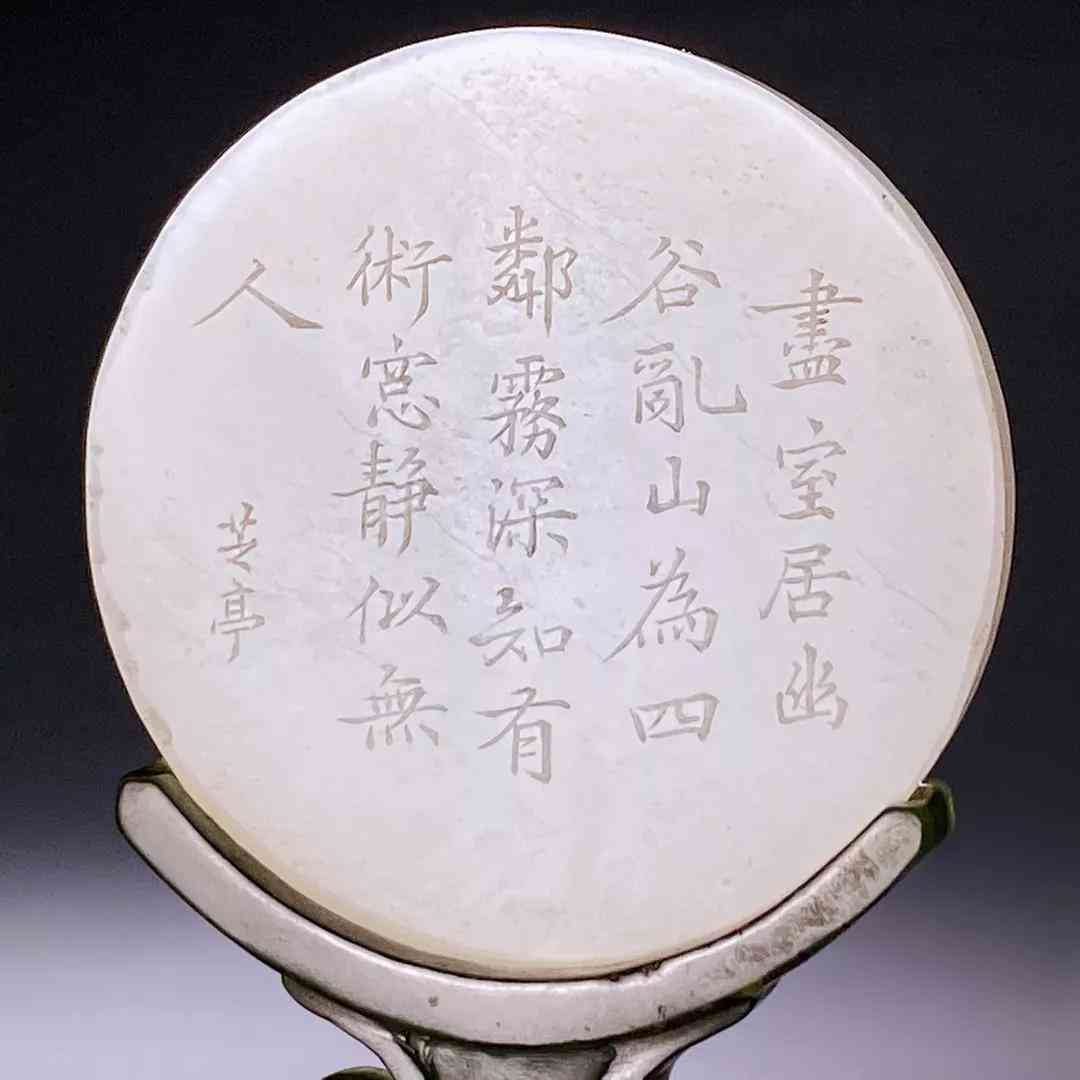 盡室居幽
谷亂山為四
鄰霧深知有
術窓靜似無
人
芝亭